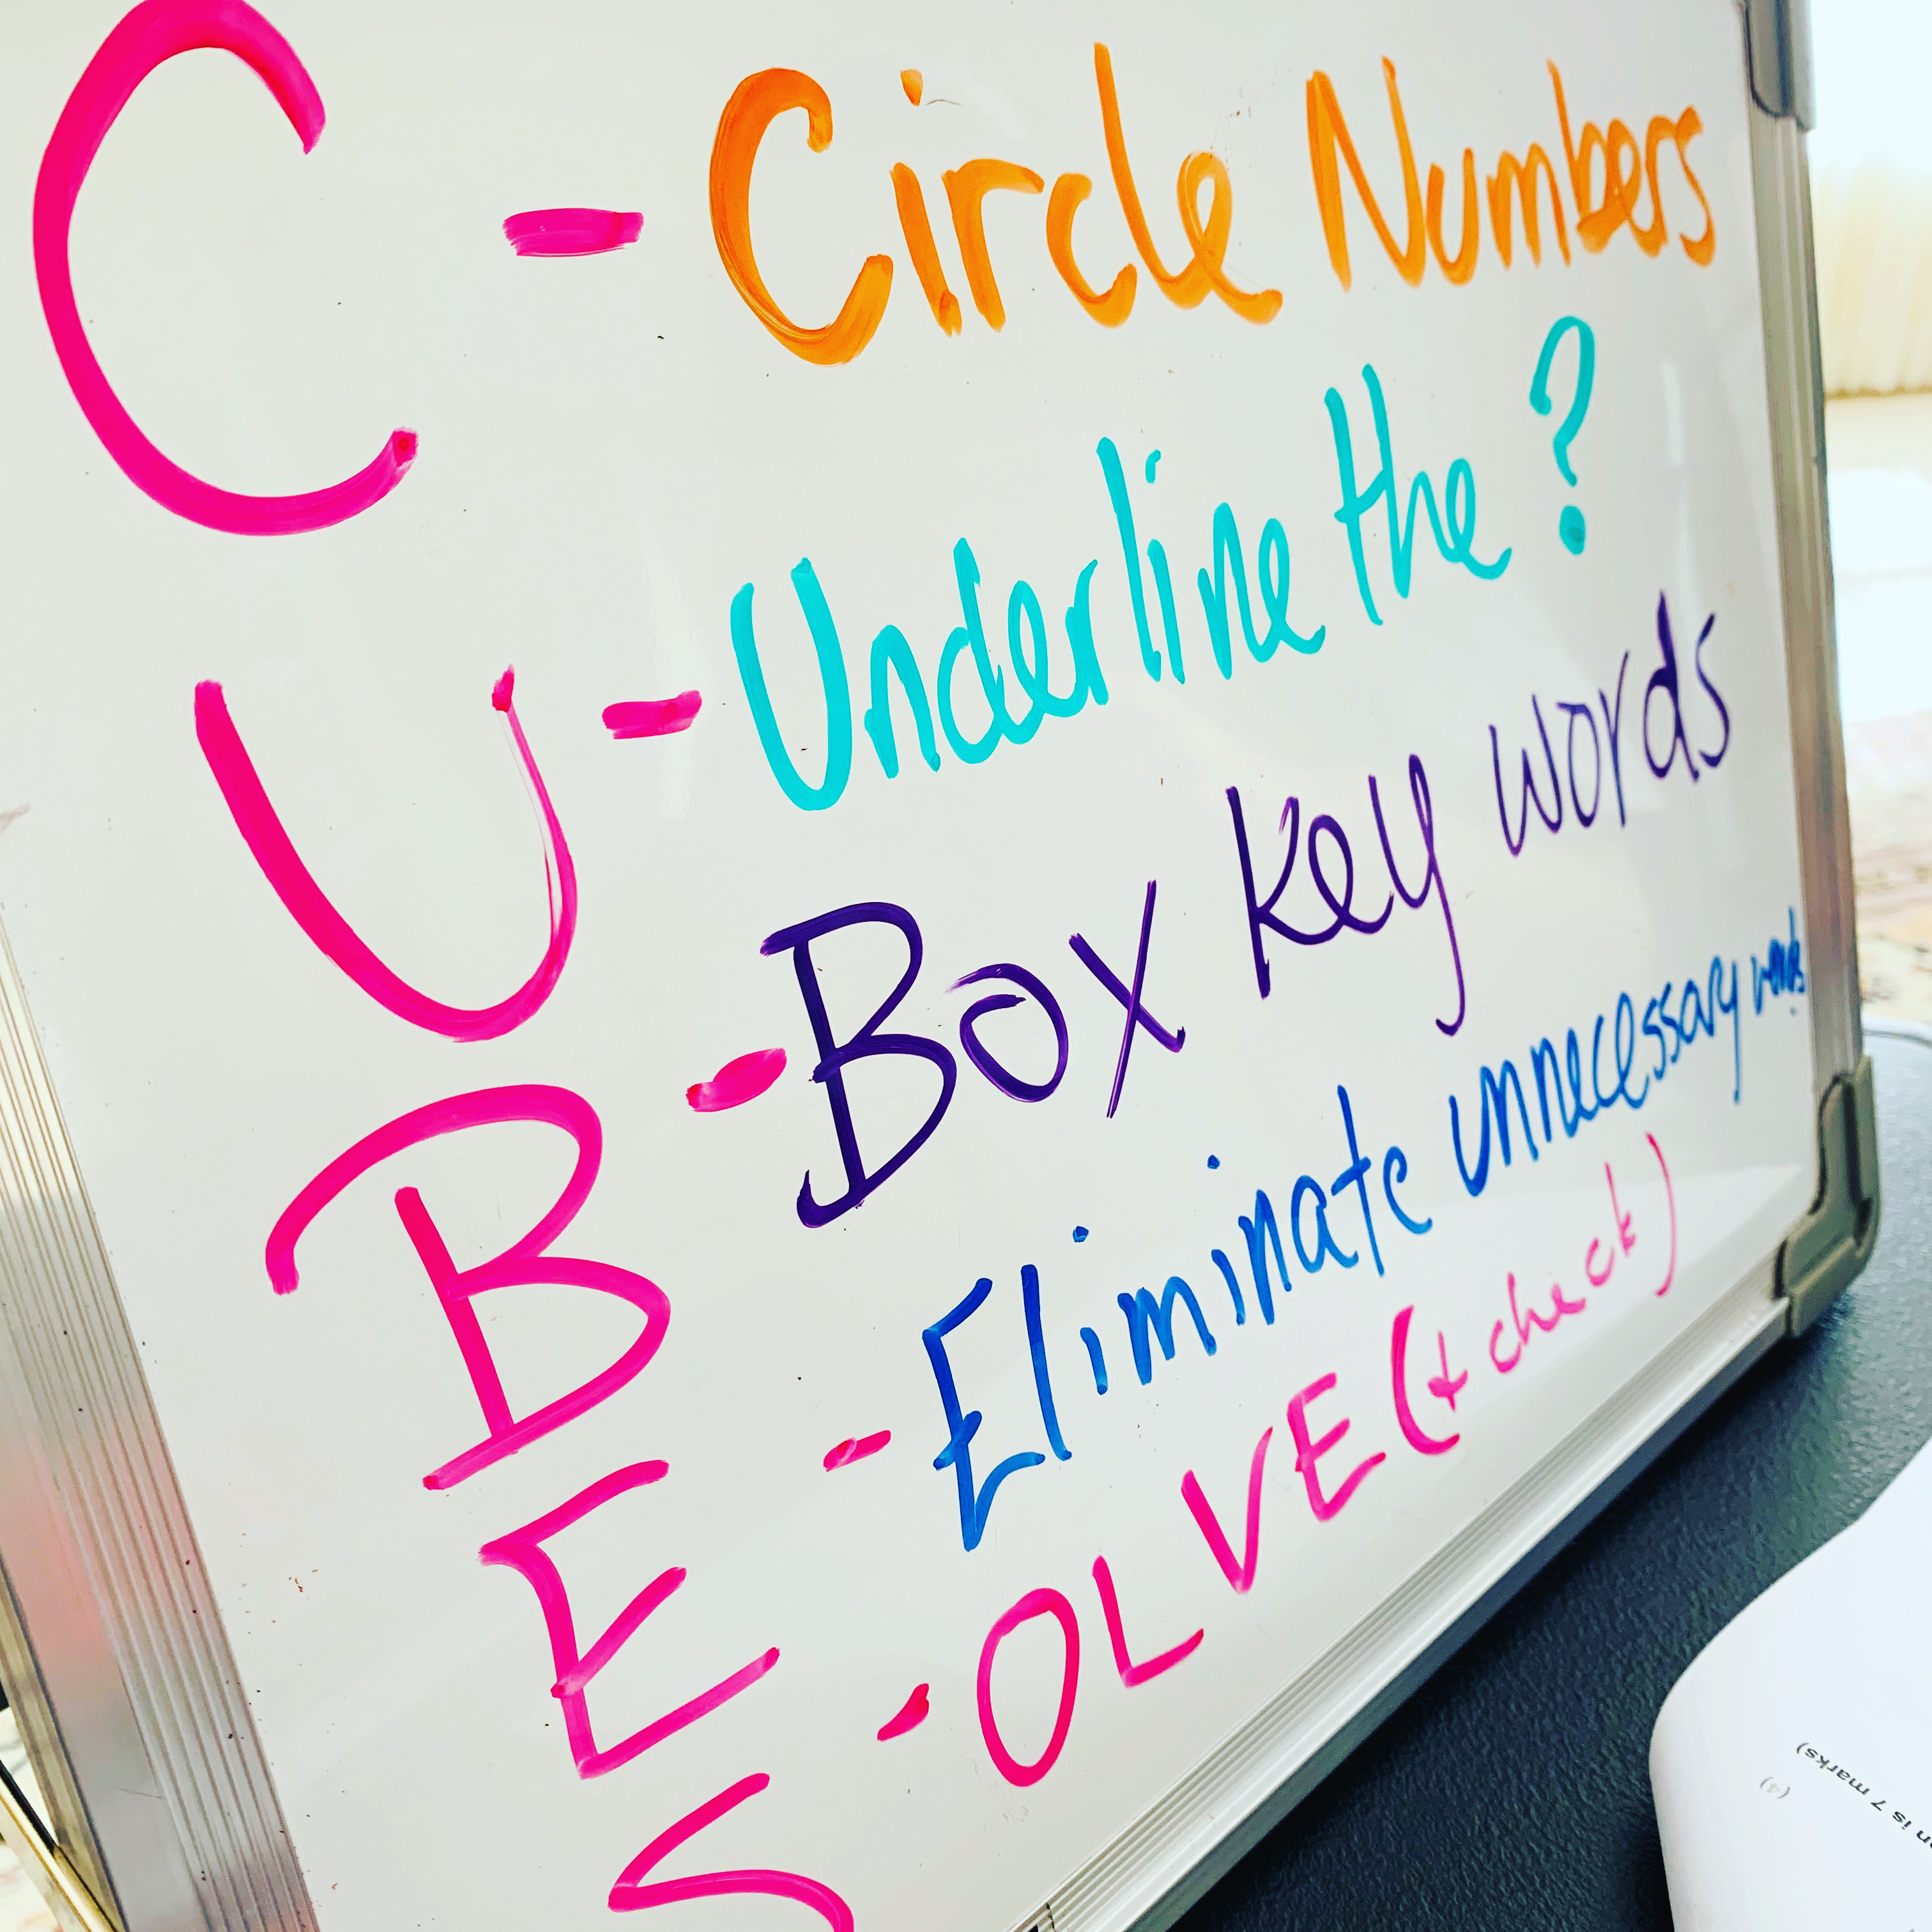 C - Circle Numbers
U - Underline the ?
B - Box Key words
E - Eliminate unnecessary words
S - OLVE (+ check)
n is 7 marks)
(4)